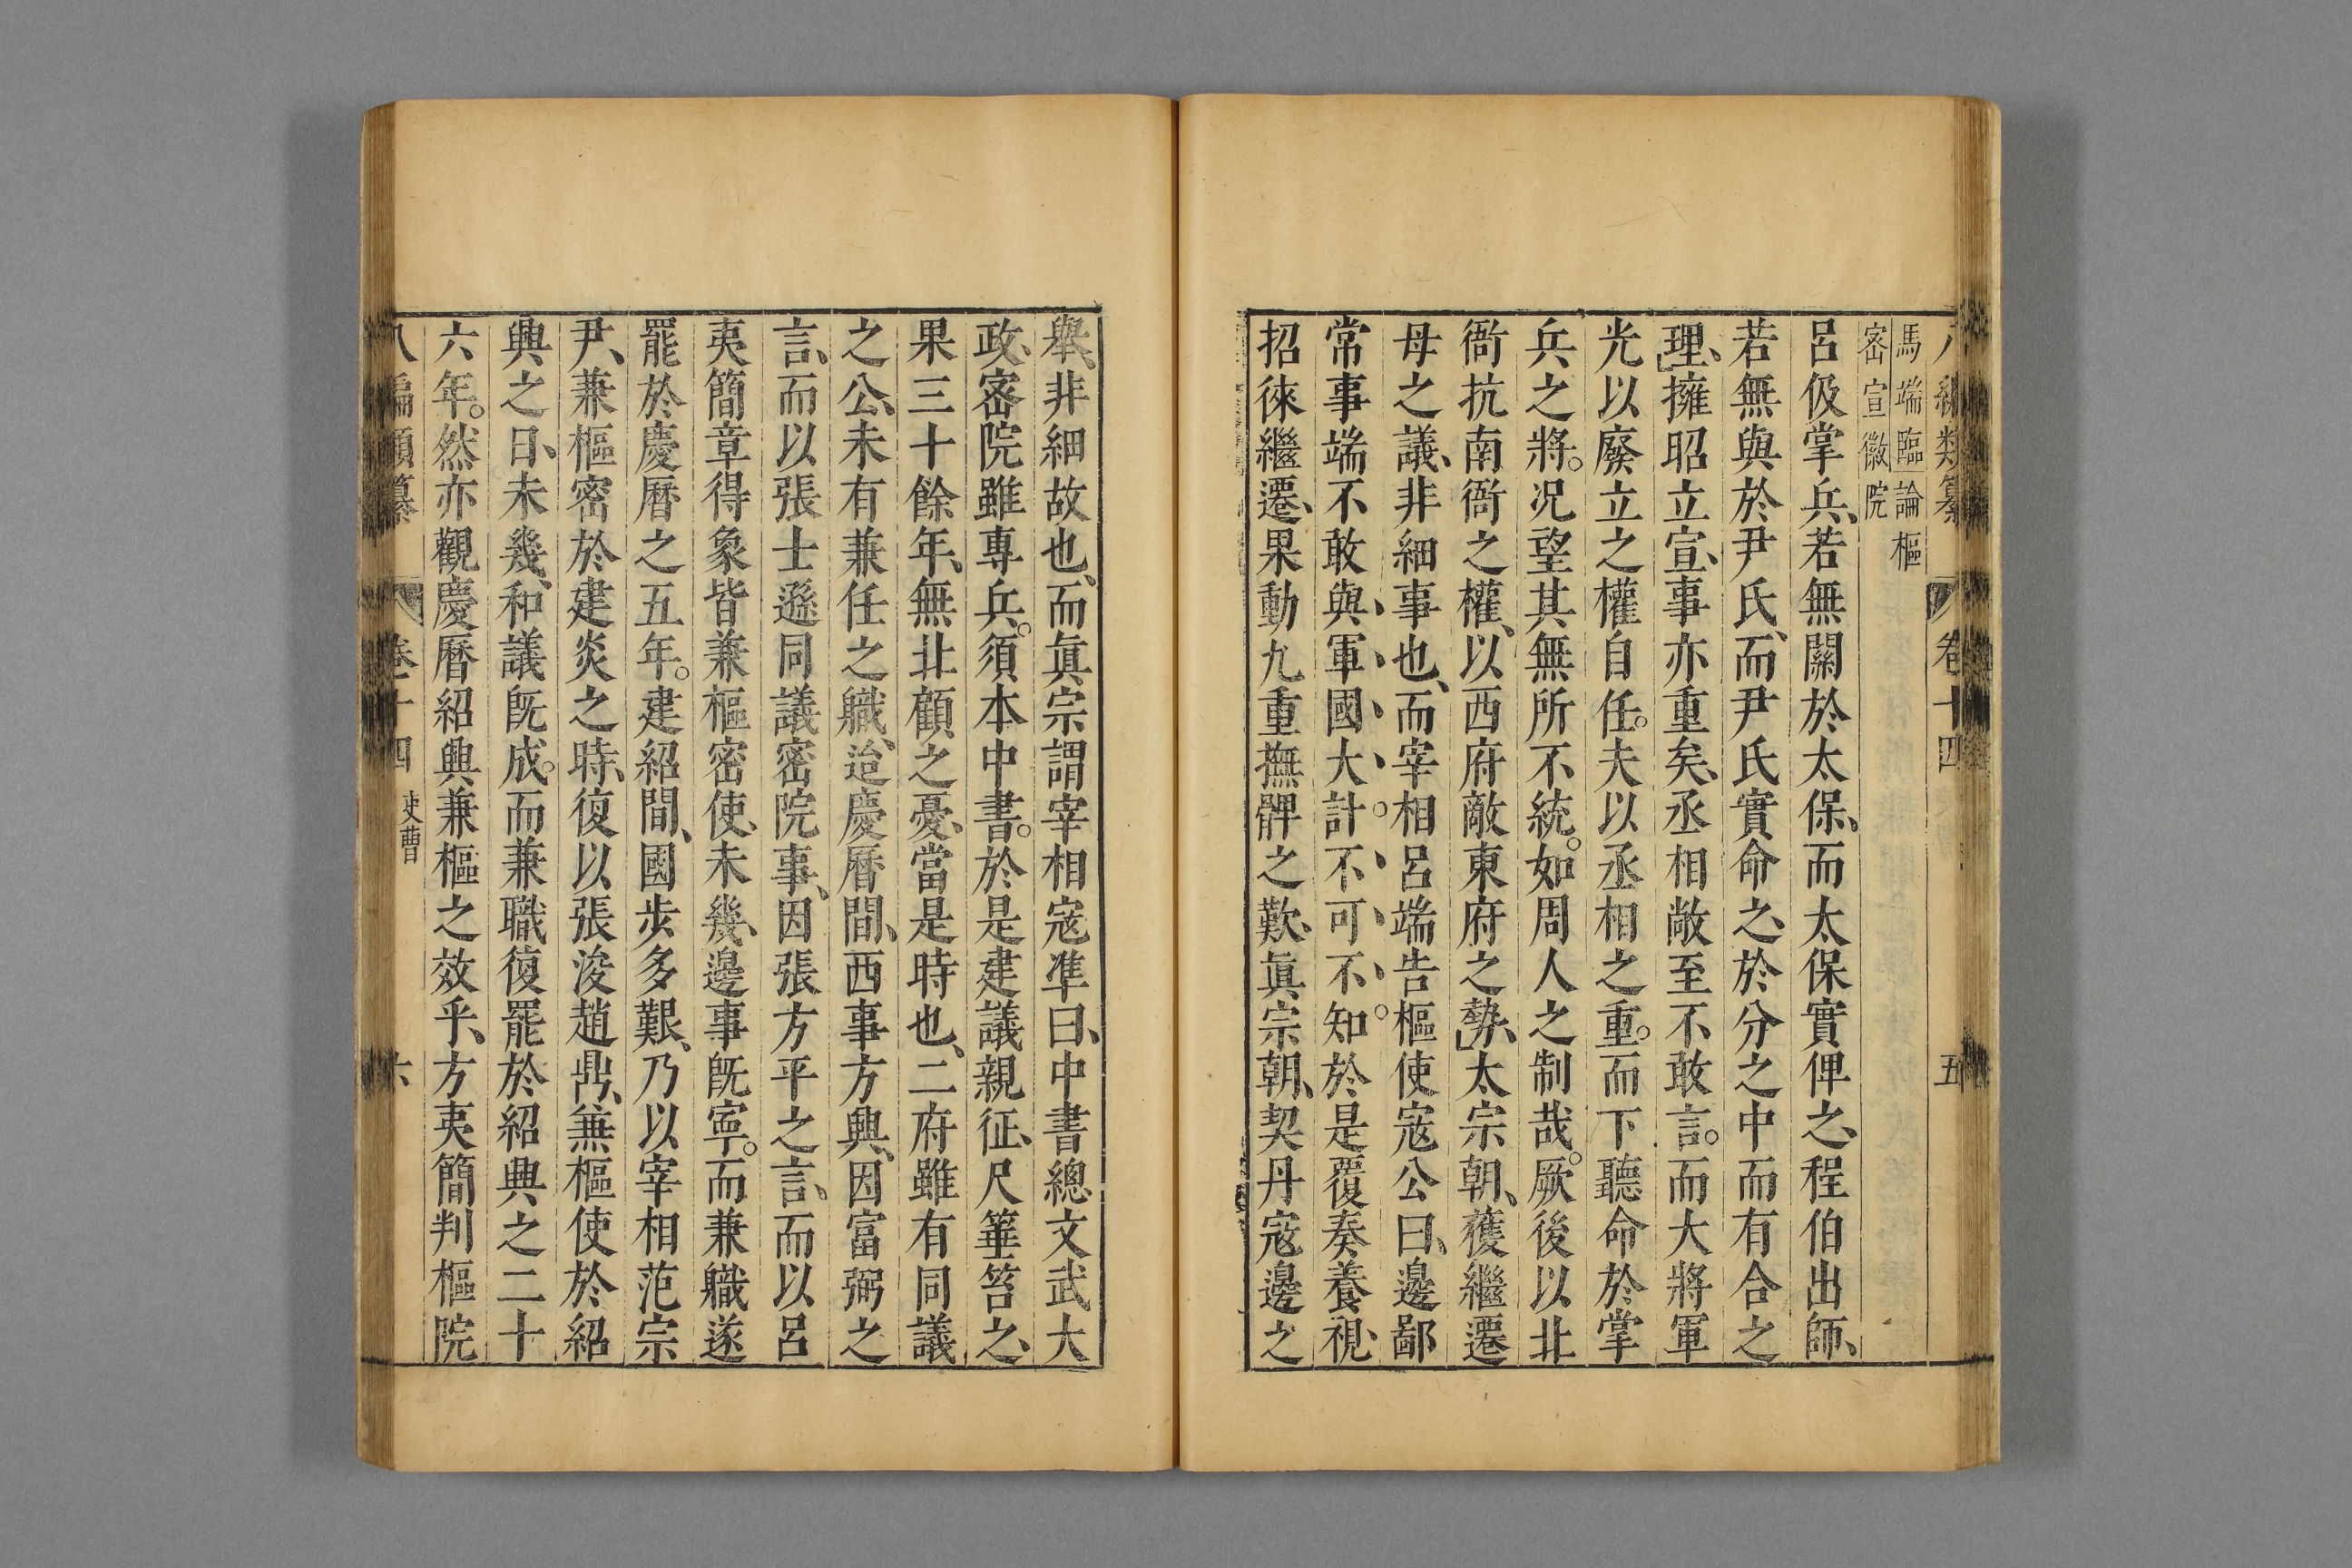 八編類纂 卷十四 五
馬端臨論樞
密宣徽院
呂伋掌兵、若無關於太保、而太保實俾之、程伯出師、
若無與於尹氏、而尹氏實命之、於分之中而有合之
理、擁昭立宣、事亦重矣、丞相敞至不敢言。而大將軍
光以廢立之權自任。夫以丞相之重。而下聽命於掌
兵之將。况望其無所不統。如周人之制哉。厥後以北
衙抗南衙之權、以西府敵東府之勢、太宗朝、獲繼遷
母之議、非細事也、而宰相呂端告樞使寇公曰、邊鄙
常事端不敢與、軍、國、大、計。不、可、不、知。於是覆奏養視、
招徠繼遷、果動九重撫髀之歎、眞宗朝、契丹寇邊之
舉、非細故也、而眞宗謂宰相寇準曰、中書總文武大
政、密院雖專兵。須本中書。於是建議親征、尺箠笞之、
果三十餘年、無北顧之憂、當是時也、二府雖有同議
之公、未有兼任之職、迨慶曆間、西事方興、因富弼之
言、而以張士遜同議密院事、因張方平之言、而以呂
夷簡章得象皆兼樞密使、未幾、邊事旣寧。而兼職遂
罷於慶曆之五年。建紹間、國步多艱、乃以宰相范宗
尹、兼樞密於建炎之時、復以張浚趙鼎、兼樞使於紹
興之日、未幾、和議旣成。而兼職復罷於紹興之二十
六年。然亦觀慶曆紹興兼樞之效乎、方夷簡判樞院
八編類纂 卷十四 吏曹 六